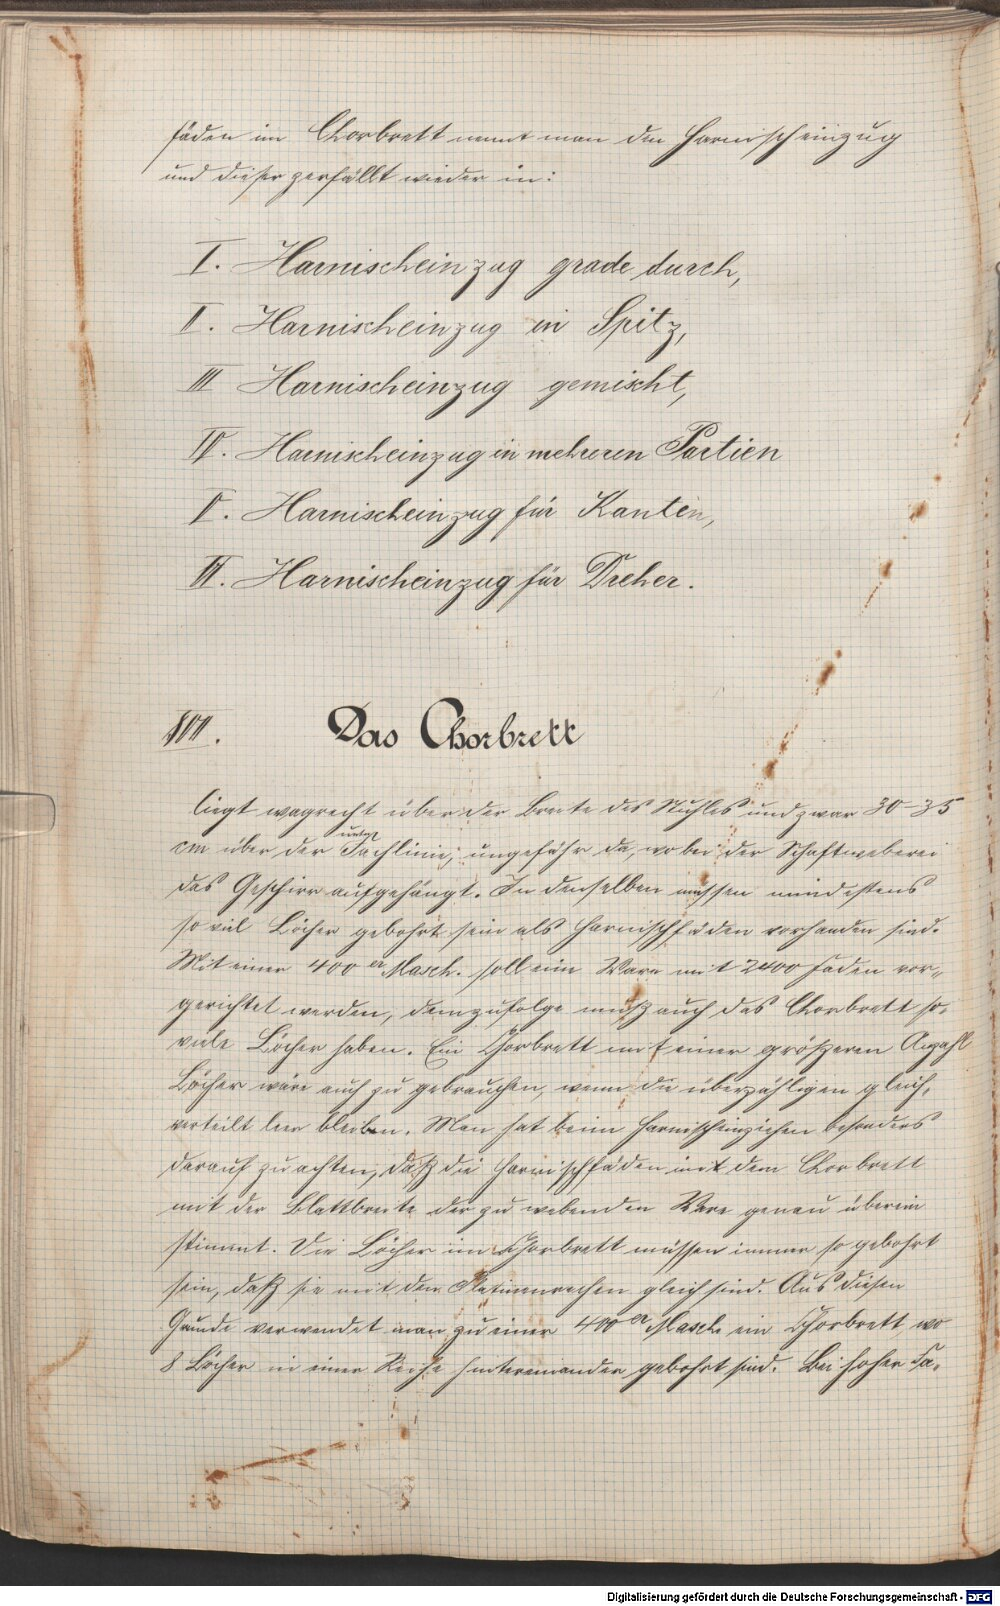 fäden im Chorbrett nennt man den Harnischeinzug
und dieser zerfällt wieder in:
I. Harnischeinzug grade durch,
II. Harnischeinzug in Spitz,
III Harnischeinzug gemischt,
IV. Harnischeinzug in mehreren Partien
V. Harnischeinzug für Kanten,
VI. Harnischeinzug für Dreher.
Das Chorbrett
liegt wagrecht über der Breite des Stuhles und zwar 30-35
cm über der Fachlinie, ungefähr da, wo bei der Schaftweberei
das Geschirr aufgehängt. In denselben müssen mindestens
so viel Löcher gebohrt sein als Harnischfäden vorhanden sind.
Mit einer 400er Masch. soll eine Ware mit 2400 Faden vor„
gerichtet werden, demzufolge muß auch das Chorbrett so„
viele Löcher haben. Ein Chorbrett mit einer größeren Anzahl
Löcher wäre auch zu gebrauchen, wenn die überzähligen gleich„
verteilt leer bleiben. Man hat beim Harnischeinziehen besonders
darauf zu achten, daß die Harnischfäden mit dem Chorbrett
mit der Blattbreite der zu webenden Ware genau überein
stimmt. Die Löcher im Chorbrett müssen immer so gebohrt
sein, daß sie mit den Platinenreihen gleich sind. Aus diesem
Grunde verwendet man zu einer 400er Masch. ein Chorbrett, wo
8 Löcher in einer Reihe hintereinander gebohrt sind. Bei hoher Fa„
Digitalisierung gefördert durch die Deutsche Forschungsgemeinschaft - DFG